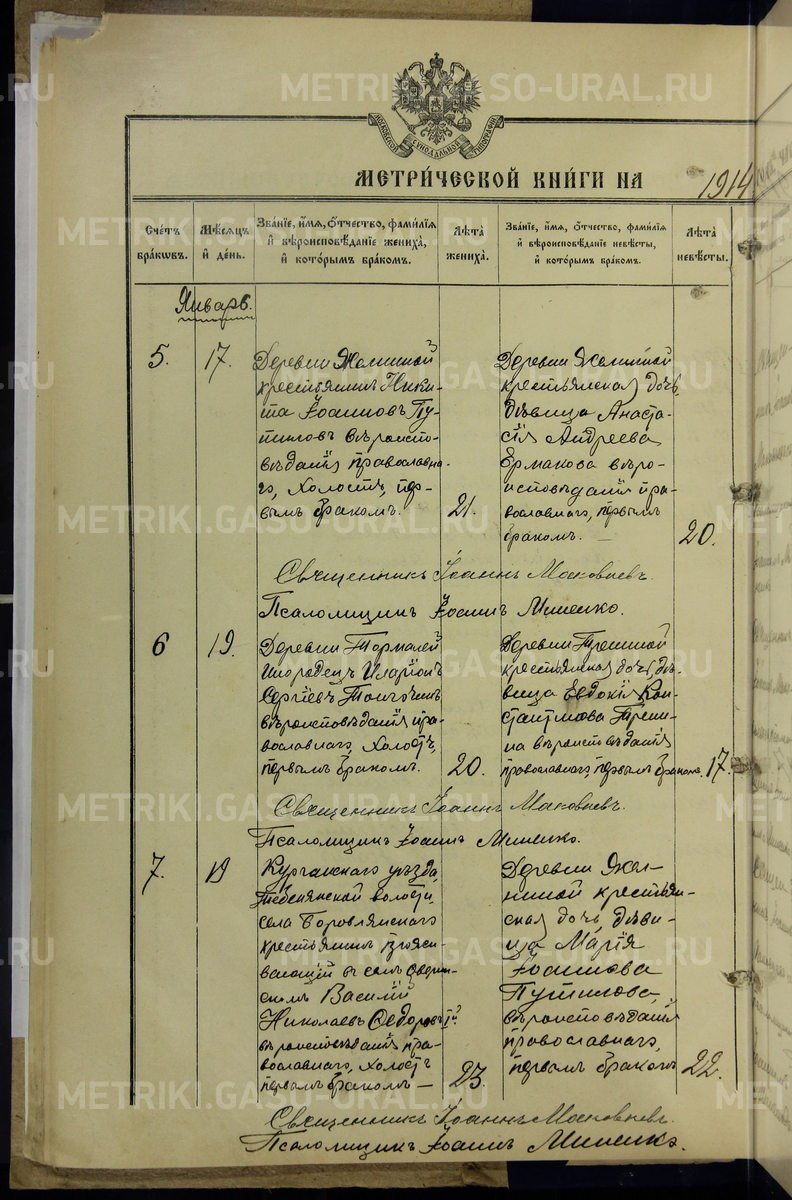 МОСКОВСКОЙ СѴНОДАЛЬНОЙ ТИПОГРАФІИ
МЕТРИ́ЧЕСКОЙ КНИ́ГИ НА 1914
Сче́тъ бра́кѡвъ.
Мѣ́сѧцъ и҆ де́нь.
Зва́нїе, и҆́мѧ, ѻ҆́тчество, фами́лїѧ
и҆ вѣроисповѣ́данїе женихà,
и҆ кото́рымъ бра́комъ.
Лѣ́та женихà.
Зва́нїе, и҆́мѧ, ѻ҆́тчество, фами́лїѧ
и҆ вѣроисповѣ́данїе невѣ́сты,
и҆ кото́рымъ бра́комъ.
Лѣ́та невѣ́сты.
Январь.
5.
17.
Деревни Жилиной
крестьянинъ Ники-
та Іоанновъ Пу-
тиловъ вѣроиспо-
вѣданія православна-
го, холостъ, пер-
вымъ бракомъ.
21.
Деревни Жилиной
крестьянская дочь,
дѣвица Анаста-
сія Андреева
Ермакова вѣро-
исповѣданія пра-
вославнаго, первымъ
бракомъ. —
20.
Священникъ Іоаннъ Маковѣевъ.
Псаломщикъ Іоаннъ Миненко.
6
19.
Деревни
Инородецъ Иларіонъ
Сергіевъ
вѣроисповѣданія пра-
вославнаго, холостъ,
первымъ бракомъ.
20.
Деревни
крестьянская дочь, дѣ-
вица Евдокія Кон-
стантинова
вѣроисповѣданія
православнаго первымъ бракомъ.
17.
Священникъ Іоаннъ Маковѣевъ.
Псаломщикъ Іоаннъ Миненко.
7.
19
Курганскаго уѣзда,
Тебенякской волости,
села Боровлянскаго
крестьянинъ прожи-
вающій въ селѣ
Василій
Николаевъ Ѳедоровъ
вѣроисповѣданія пра-
вославнаго, холостъ
первымъ бракомъ —
23.
Деревни Жи-
линой крестьян-
ская дочь, дѣви-
ца Марія
Іоаннова
Путилова,
вѣроисповѣданія
православнаго,
первымъ бракомъ
22.
Священникъ Іоаннъ Маковѣевъ.
Псаломщикъ Іоаннъ Миненко.
METRIKI.GASO-URAL.RU